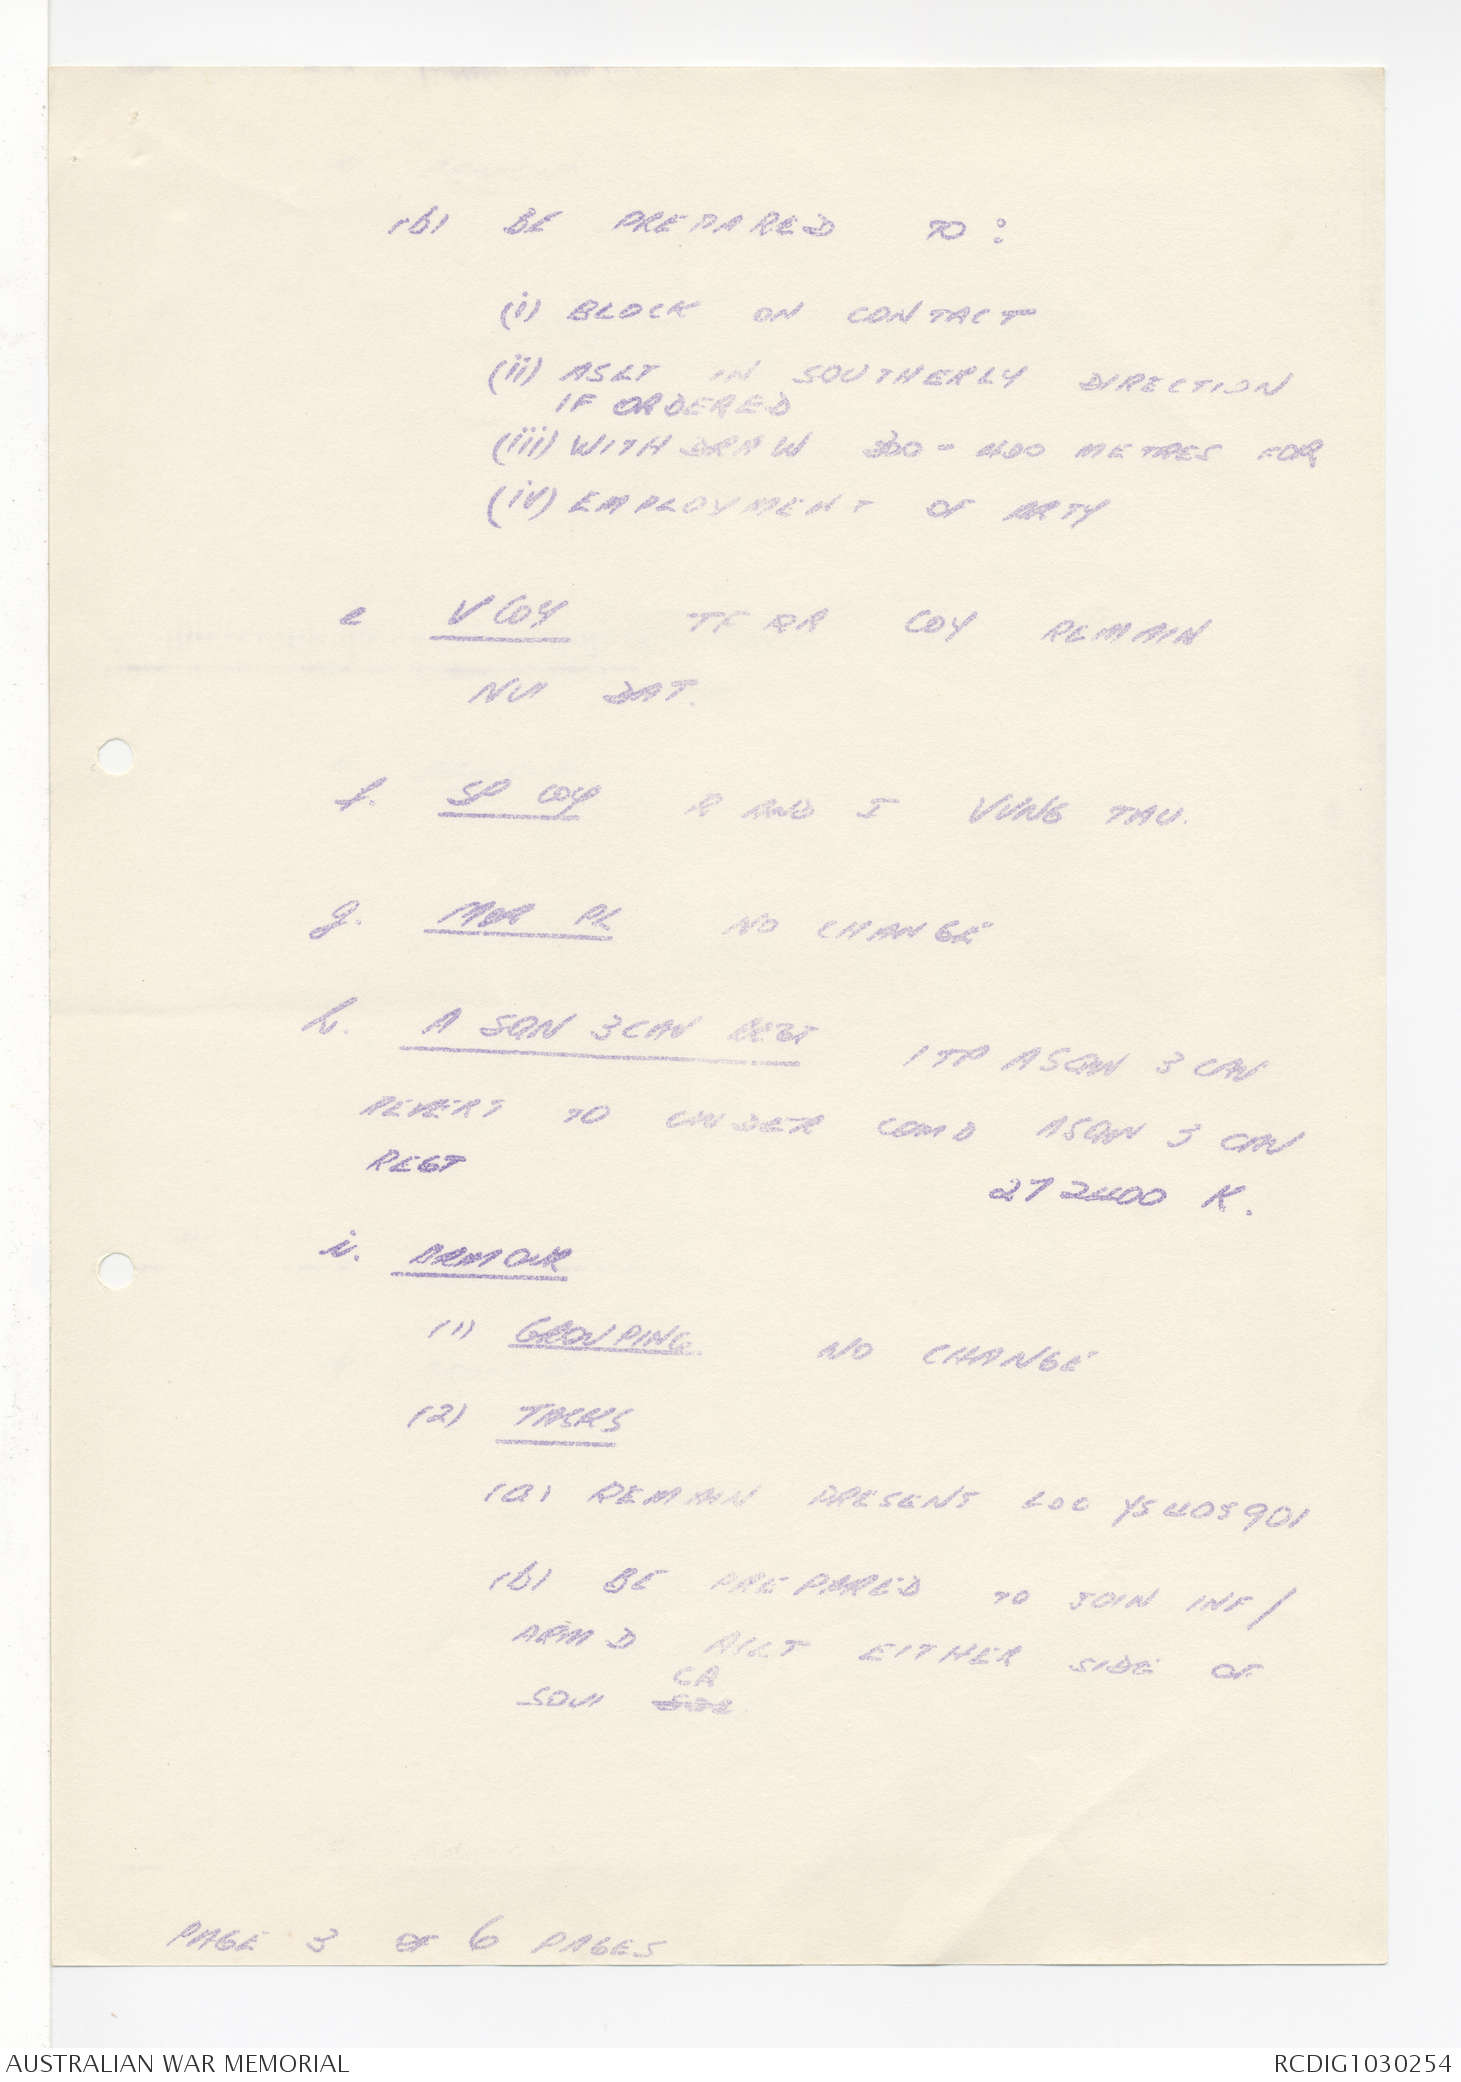 (b) BE PREPARED TO:
(i) BLOCK ON CONTACT
(ii) ASLT IN SOUTHERLY DIRECTION
IF ORDERED
(iii) WITHDRAW 300 - 400 METRES FOR
(iv) EMPLOYMENT OF ARTY
e V COY TF RR COY REMAIN
NUI DAT.
f. SP COY R AND I VUNG TAU.
g. MOR PL NO CHANGE
h. A SQN 3 CAV REGT 1 TP A SQN 3 CAV
REVERT TO UNDER COMD A SQN 3 CAV
REGT
272400 K.
i. ARMOUR
(1) GROUPING NO CHANGE
(2) TASKS
(a) REMAIN PRESENT LOC YS403901
(b) BE PREPARED TO JOIN INF/
ARMD ASLT EITHER SIDE OF
CA
SOUI
PAGE 3 OF 6 PAGES
AUSTRALIAN WAR MEMORIAL
RCDIG1030254